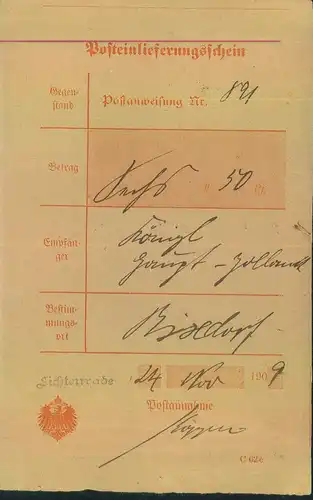 Posteinlieferungsschein
Gegen-
stand
Postanweisung Nr. 891
Betrag
Sechs M 50 Pf.
Empfän-
ger
Königl
Haupt-Zollamt
Bestim-
mungs-
ort
Rixdorf
Lichtenrade
24 Nov 1909
Postannahme
C 62c